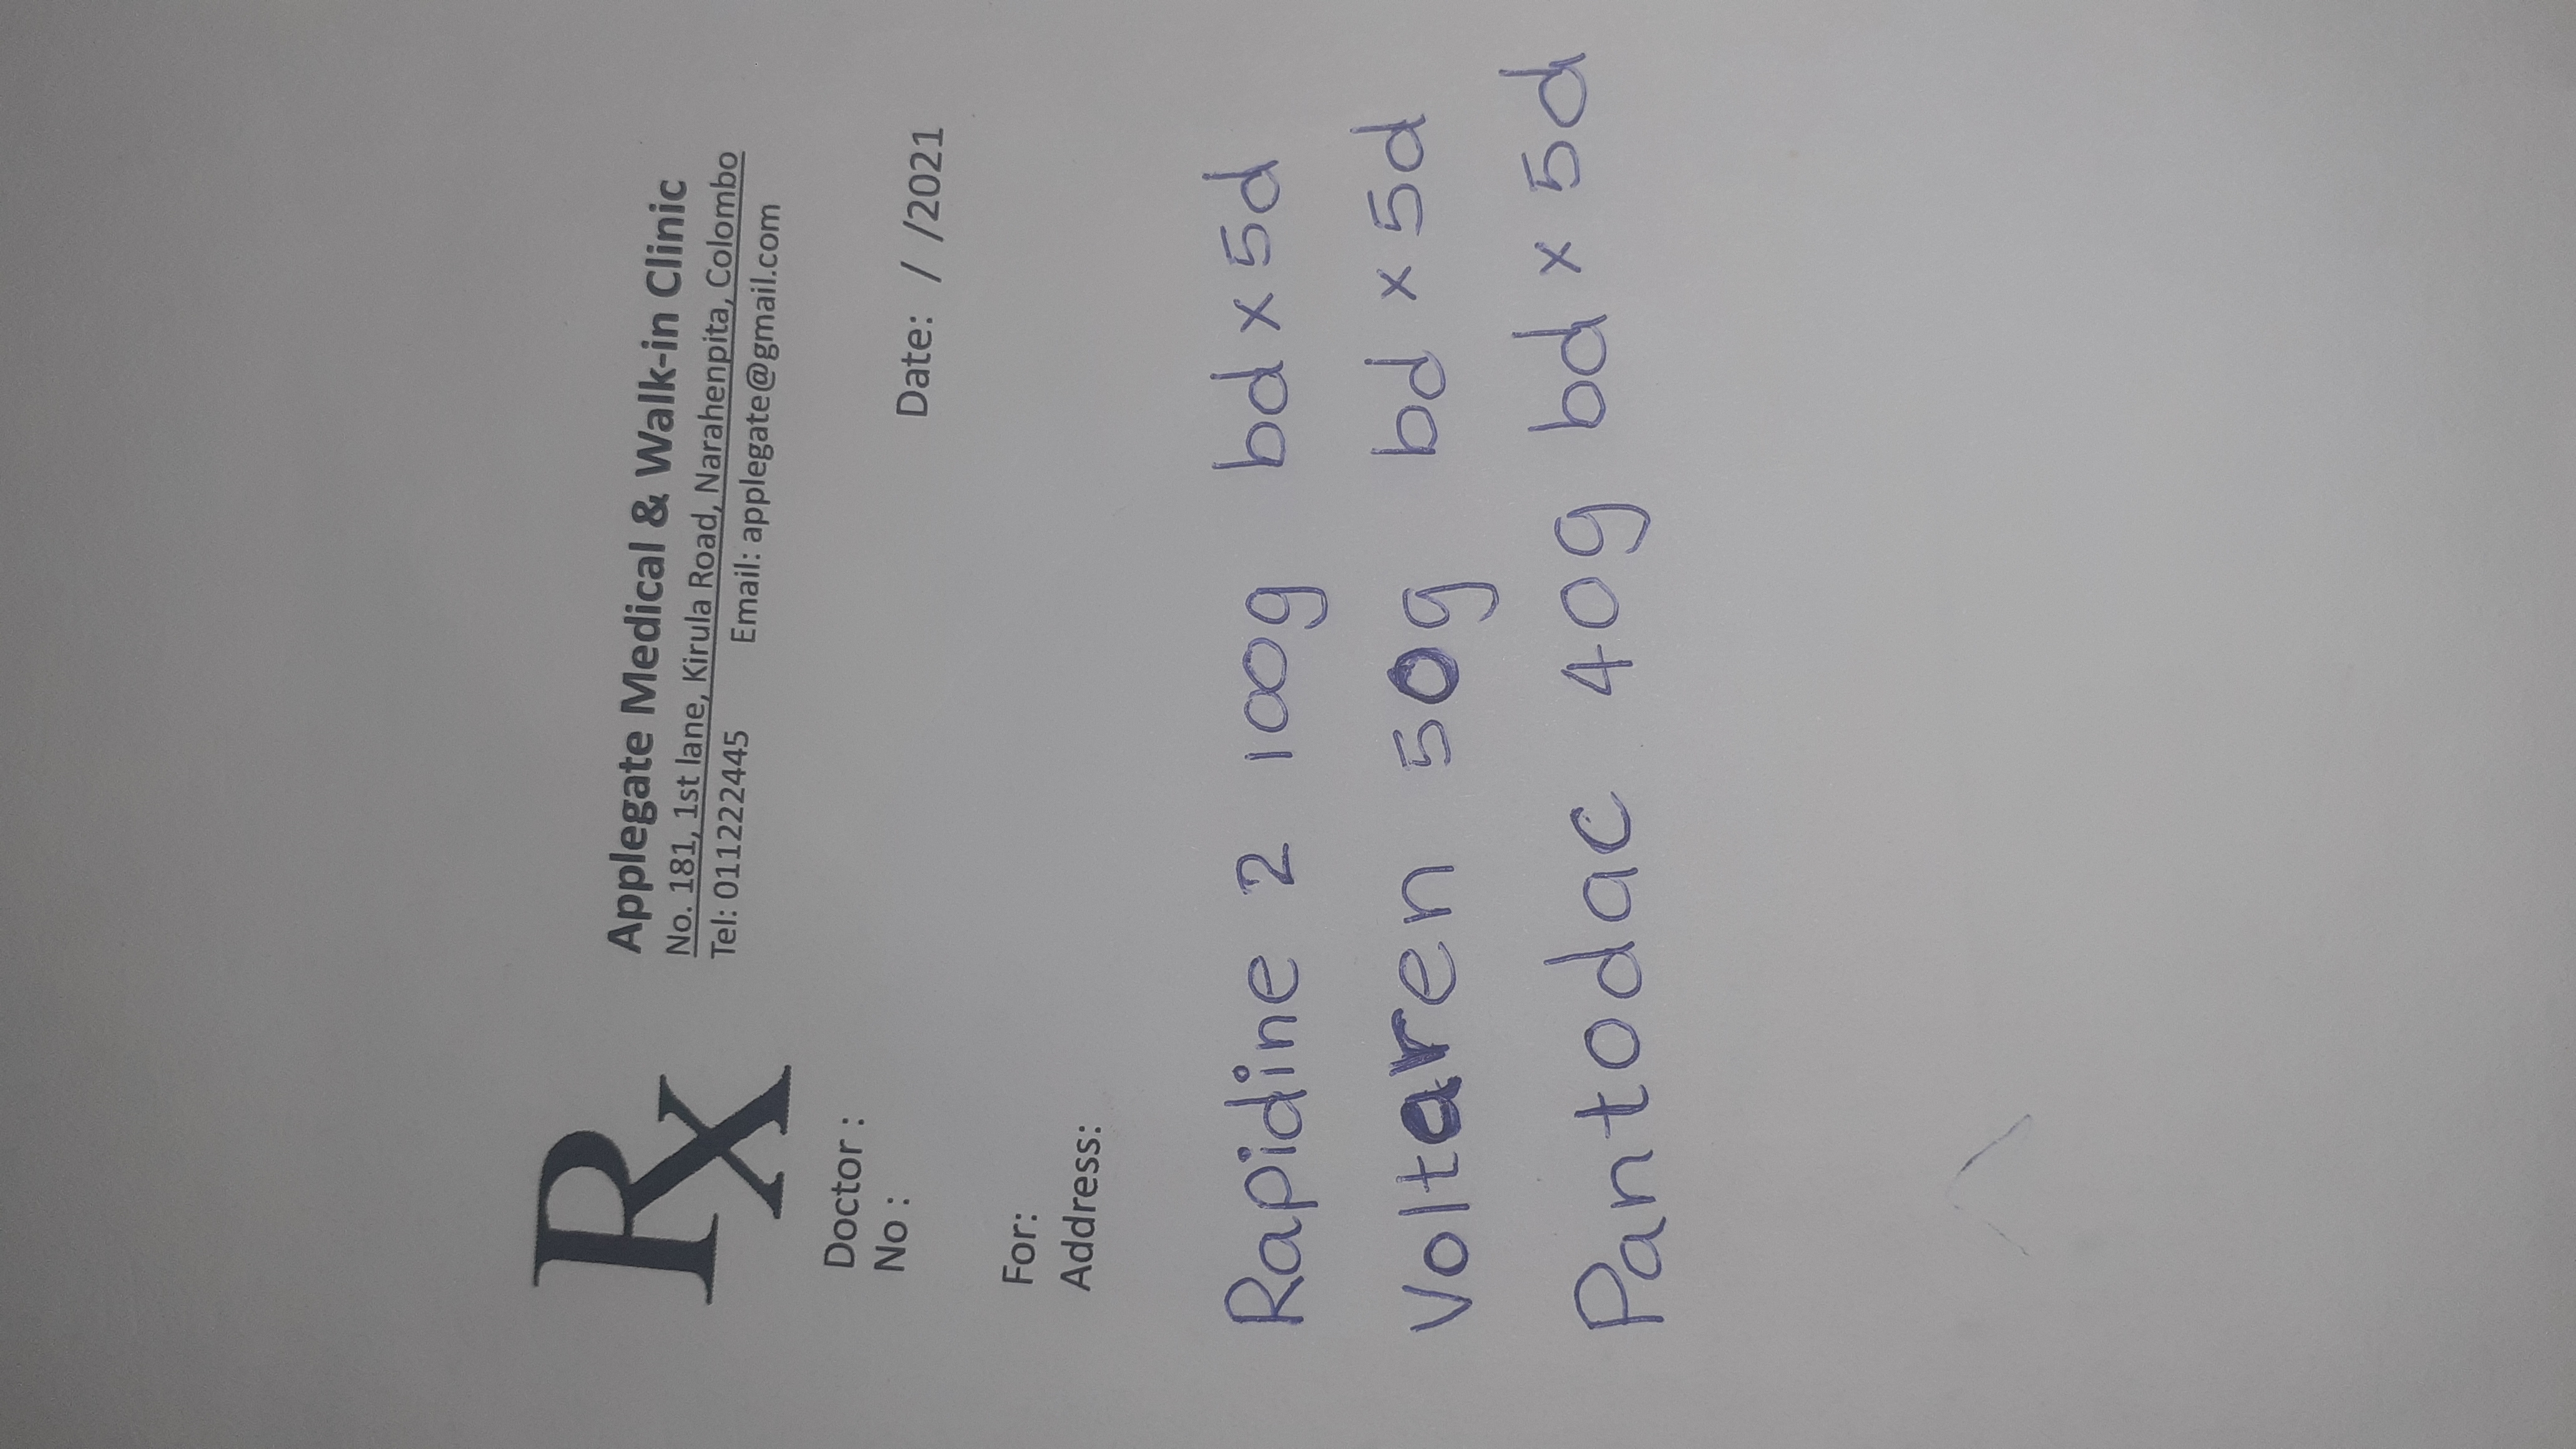 Rx
Applegate Medical & Walk-in Clinic
No. 181, 1st lane, Kirula Road, Narahenpita, Colombo
Tel: 0112222445 Email: applegate@gmail.com
Doctor :
No :
Date: / /2021
For:
Address:
Rapidine 2 100g bd x 5d
Voltaren 50g bd x 5d
Pantodac 40g bd x 5d